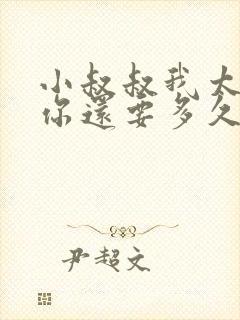 小叔叔我太
你還要多久
尹超文